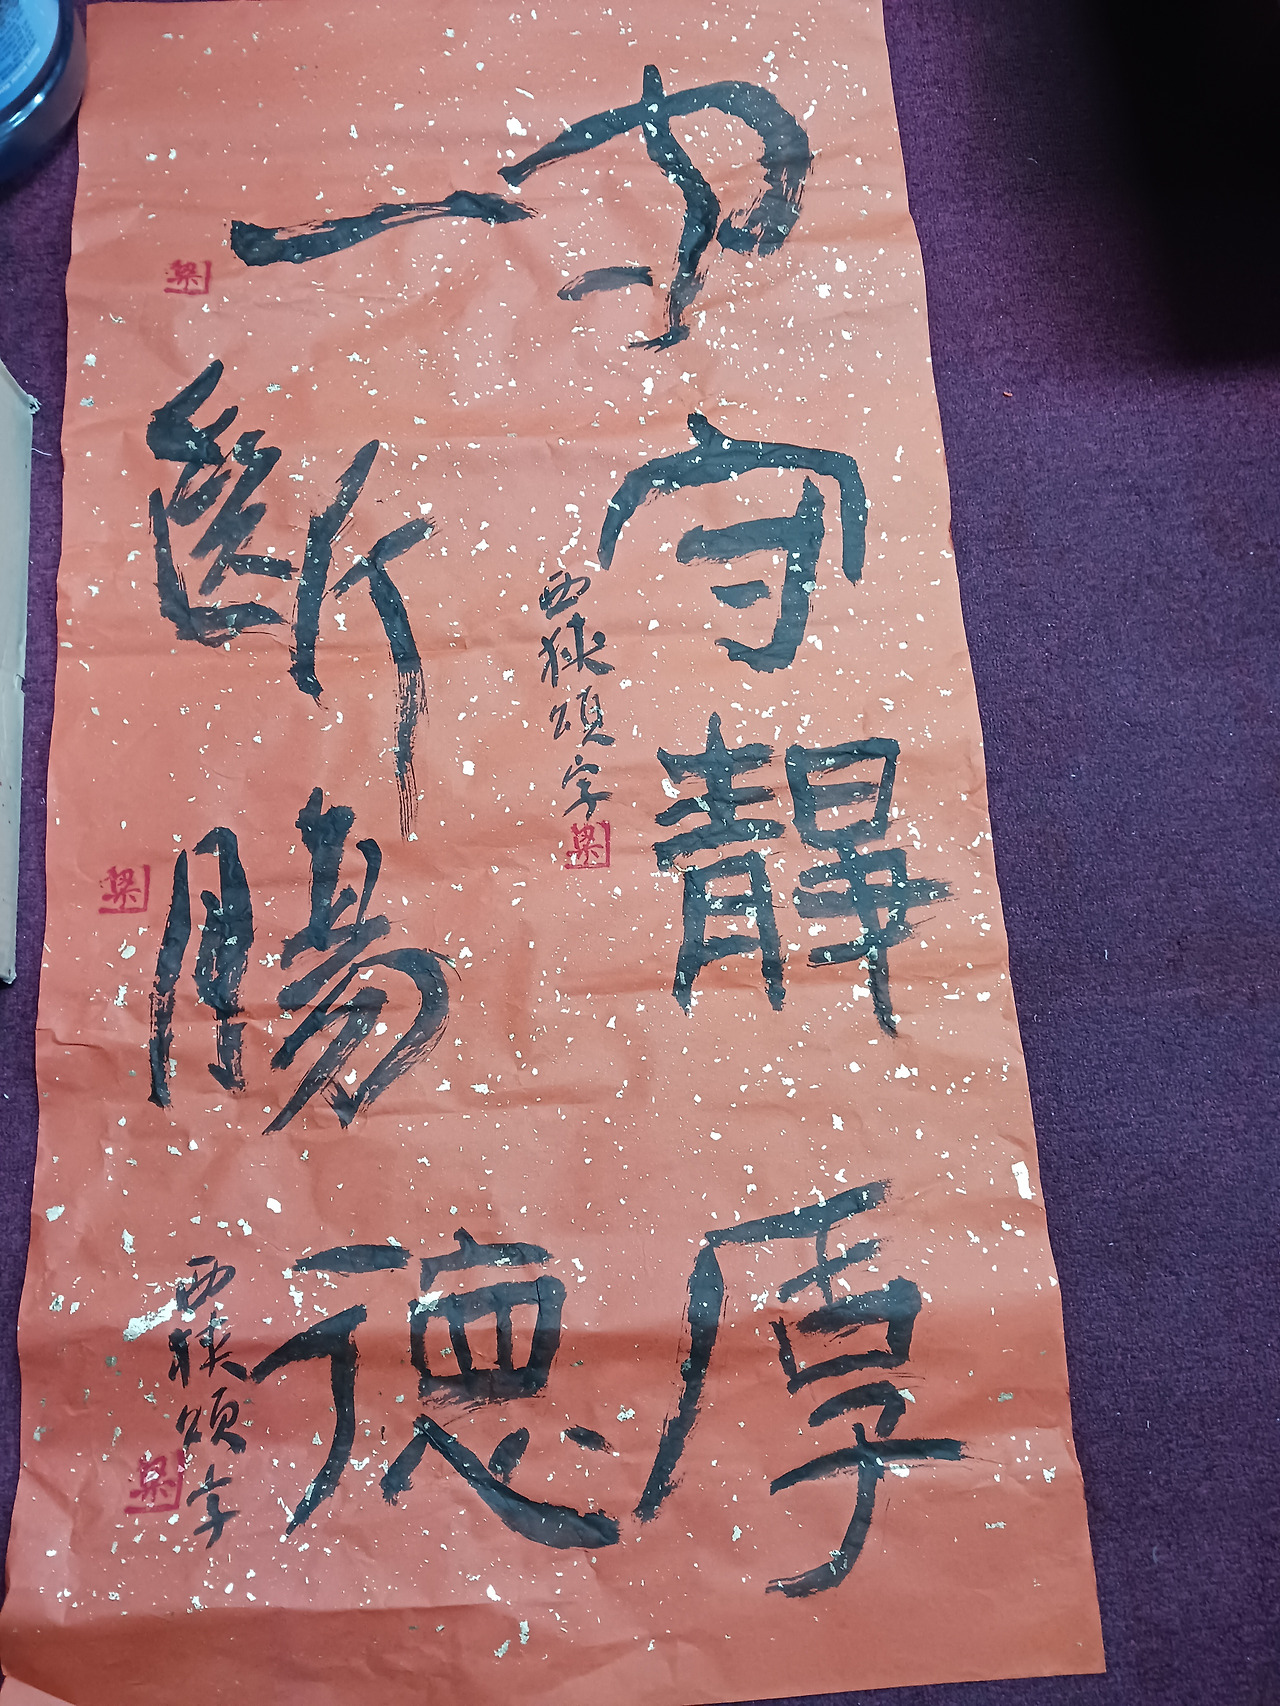 守
靜
厚
西狭頌字
梁
一
斷
腸
德
西狭頌字
梁
梁
梁